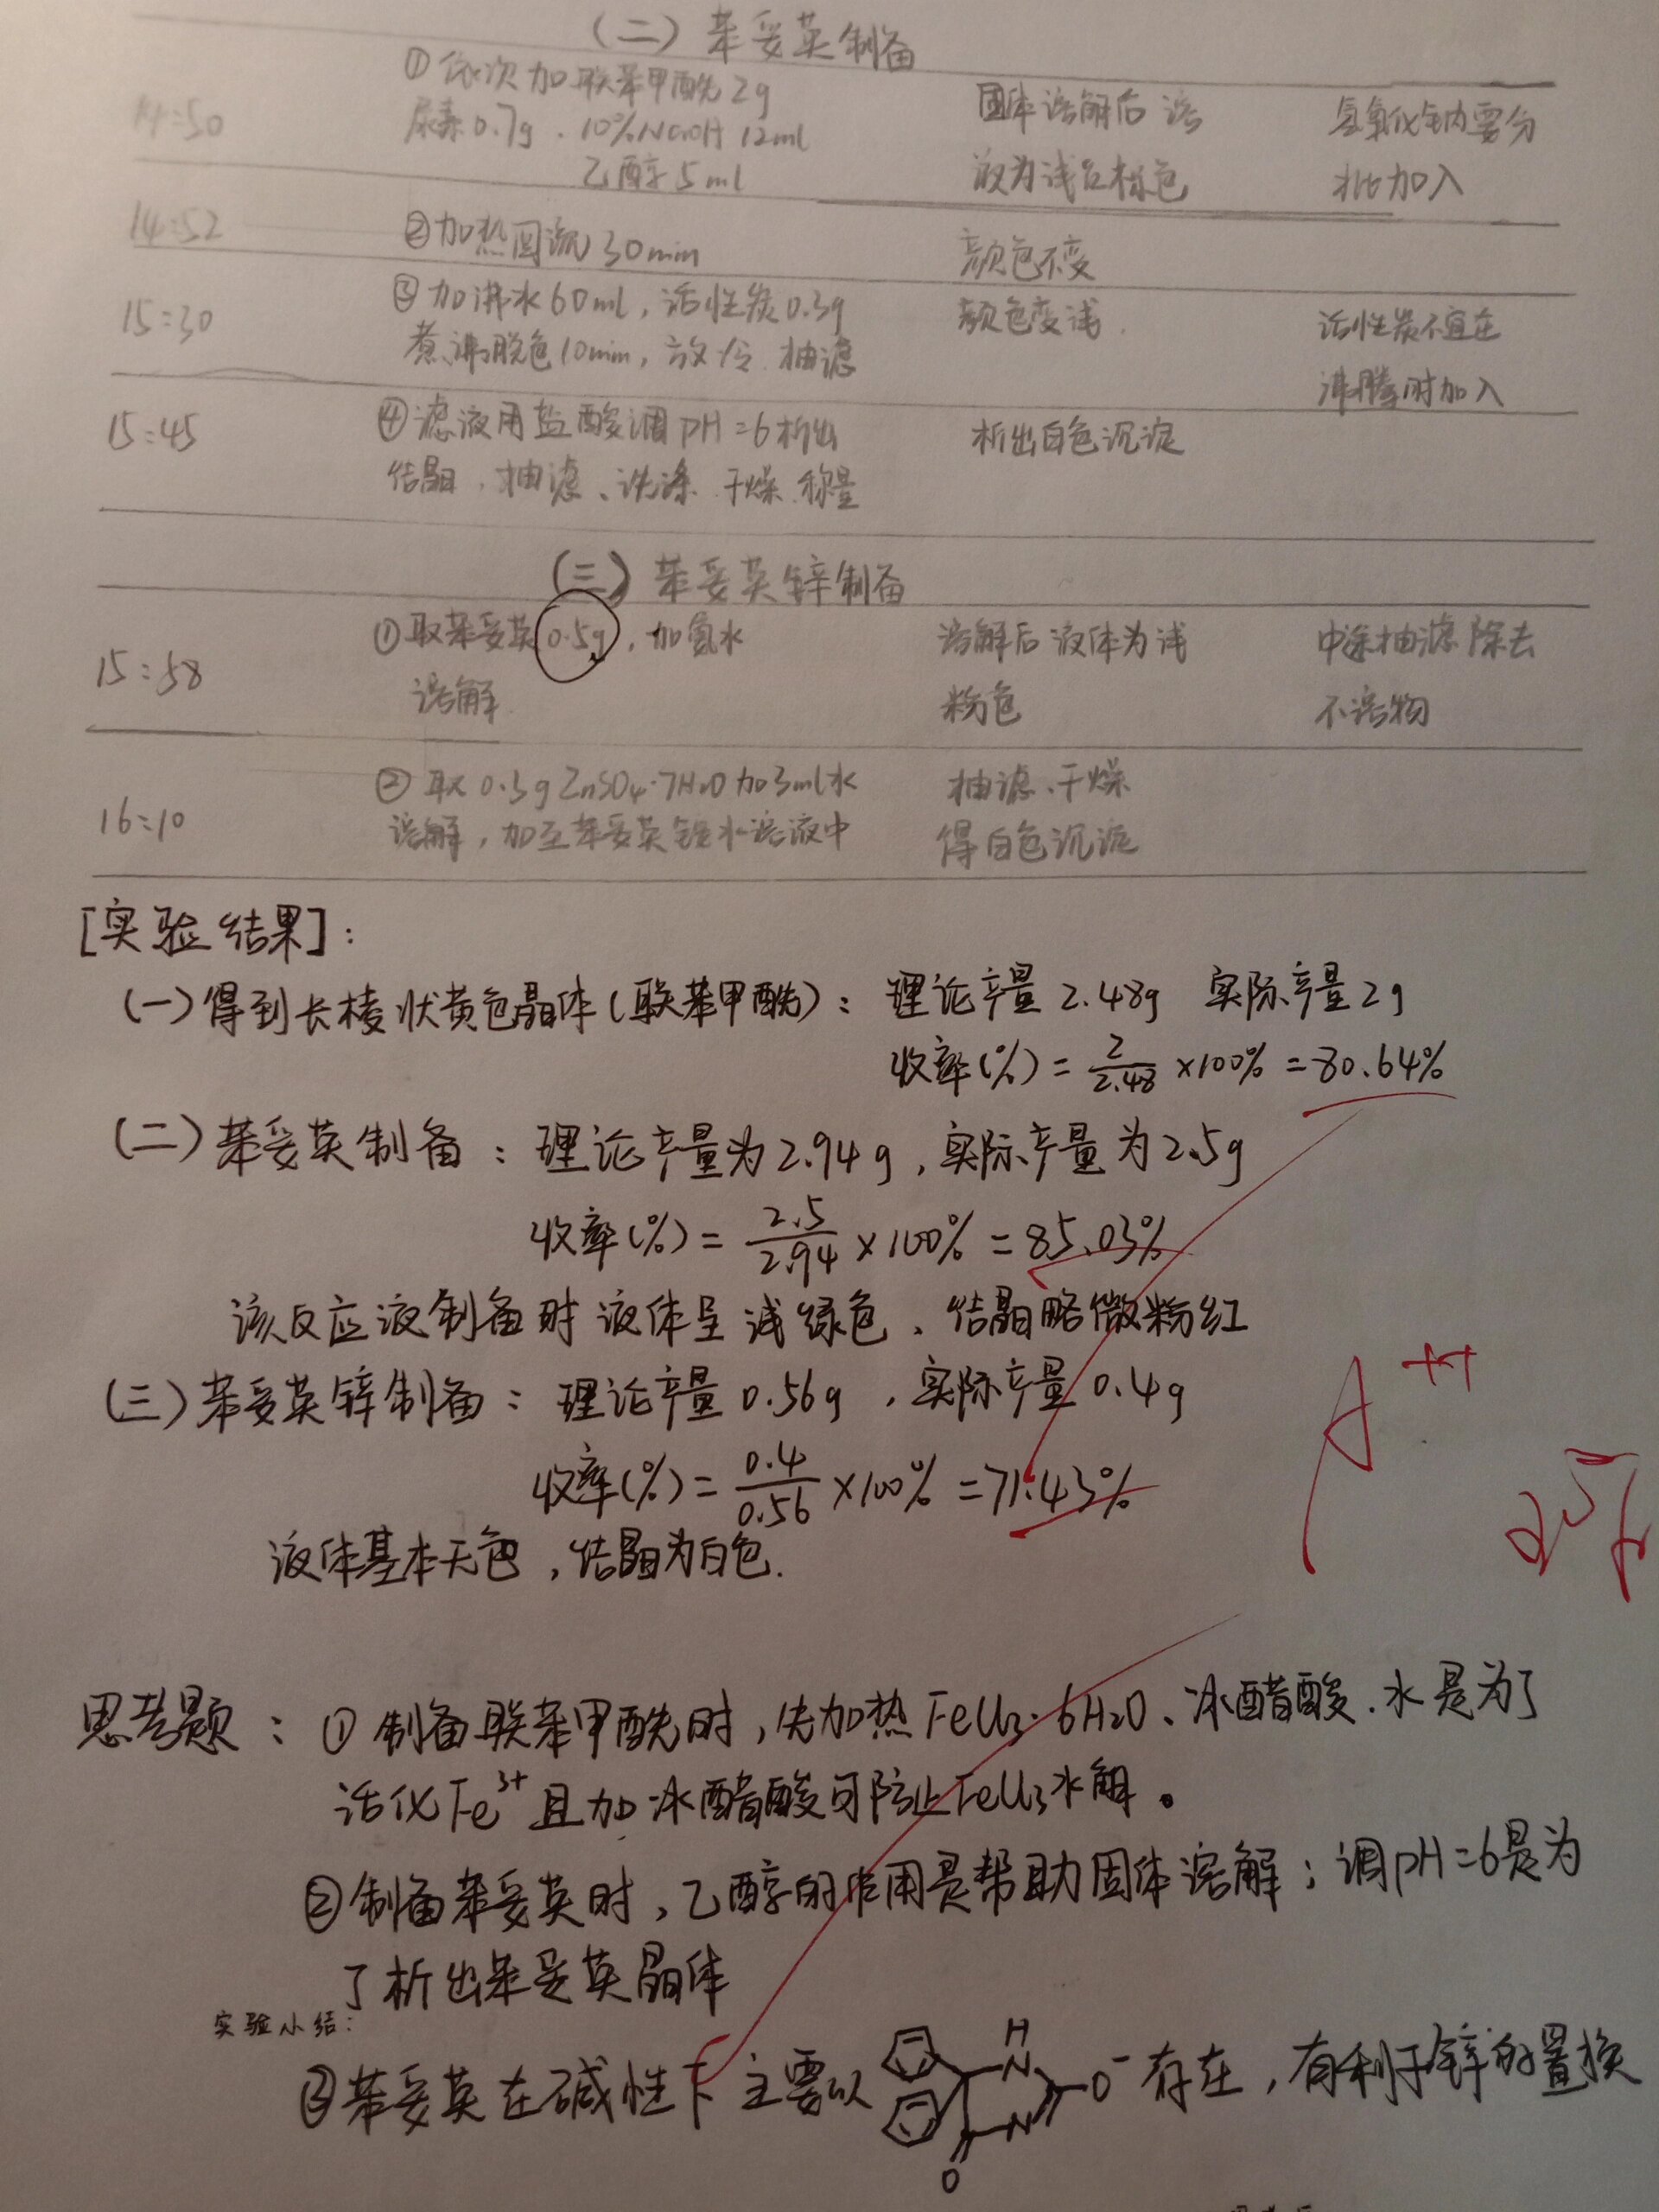 (二) 苯妥英制备
14:50
① 依次加联苯甲酰 2g
尿素 0.7g、10%NaOH 12ml
乙醇 5ml
固体溶解后 溶
液为浅棕色
氢氧化钠要分
批加入
14:52
②加热回流 30min
颜色不变
15:30
③ 加沸水60ml, 活性炭0.3g
煮沸脱色10min, 放冷 抽滤
颜色变浅
活性炭不宜在
沸腾时加入
15:45
④滤液用盐酸调 pH=6 析出
结晶、抽滤、洗涤 干燥 称量
析出白色沉淀
(三) 苯妥英锌制备
15:58
①取苯妥英 0.5g, 加氨水
溶解
溶解后 液体为浅
粉色
中途抽滤 除去
不溶物
16:10
② 取 0.3g ZnSO₄·7H₂O 加3ml水
溶解, 加至苯妥英铵水溶液中
抽滤、干燥
得白色沉淀
[实验结果]:
(一) 得到长棱状黄色晶体(联苯甲酰): 理论产量 2.48g 实际产量 2g
收率(%) = 2/2.48 ×100% = 80.64%
(二) 苯妥英制备: 理论产量为 2.94g, 实际产量为 2.5g
收率(%) = 2.5/2.94 ×100% = 85.03%
该反应液制备时 液体呈 浅绿色、结晶略微粉红
(三) 苯妥英锌制备: 理论产量 0.56g, 实际产量 0.4g
收率(%) = 0.4/0.56 ×100% = 71.43%
A++
液体基本无色, 结晶为白色.
思考题: ① 制备联苯甲酰时, 先加热 FeCl₃·6H₂O、冰醋酸、水是为了
活化 Fe³⁺ 且加冰醋酸可防止FeCl₃水解。
②制备苯妥英时, 乙醇的作用是帮助固体溶解; 调pH=6是为
了析出苯妥英晶体
实验小结:
③苯妥英在碱性下 主要以 H N O⁻ N O 存在, 有利于锌的置换